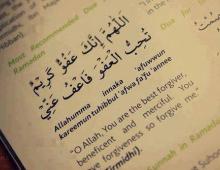 Most Recommended Dua for
اللَّهُمَّ إِنَّكَ عَفُوٌّ كَرِيمٌ
تُحِبُّ الْعَفْوَ فَاعْفُ عَنِّي
Allahumma innaka 'afuwwun
kareemun tuhibbul 'afwa fa'fu 'annee
"O Allah, You are the best forgiver,
beneficent, and merciful. You
love forgiveness so forgive me."
(Tirmidhi).
in Ramadan